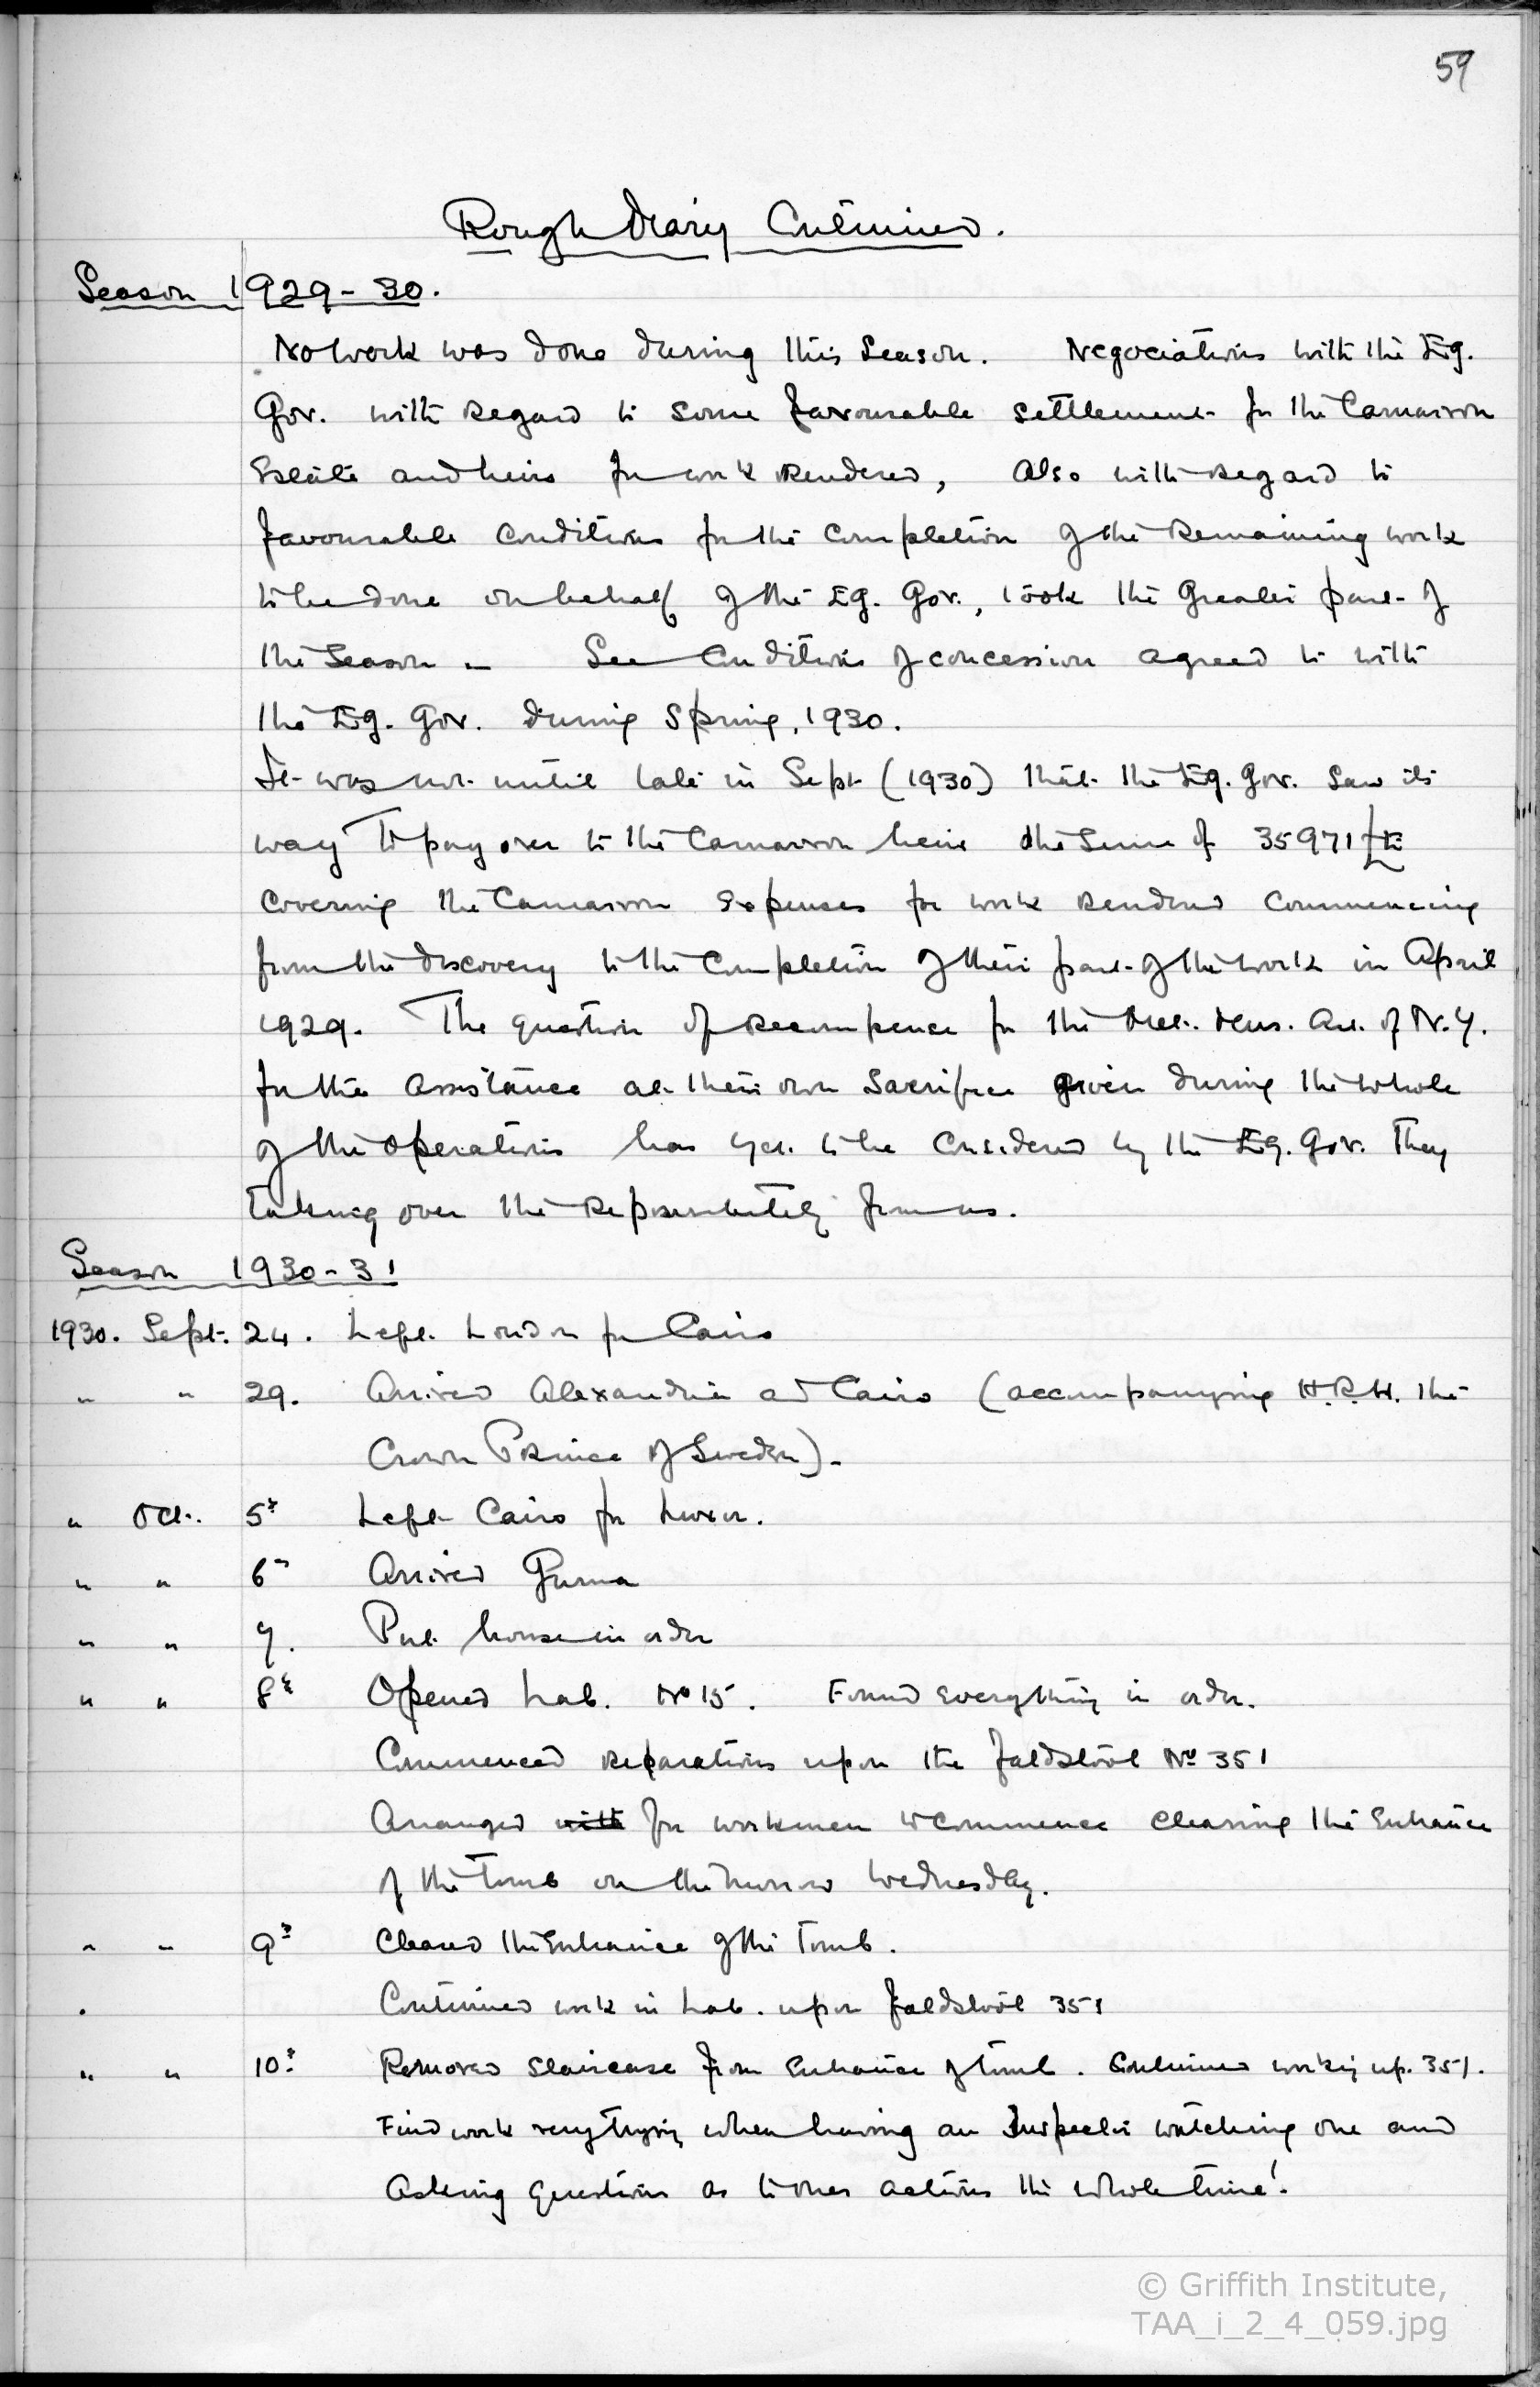 59
Rough Diary Continued.
Season 1929-30.
No work was done during this season. Negociations with the Eg.
Gov. with regard to some favourable settlement for the Carnarvon
Estate and heirs for work rendered, also with regard to
favourable conditions for the completion of the remaining work
to be done on behalf of the Eg. Gov., took the greater part of
the season - See conditions of concession agreed to with
the Eg. Gov. during Spring, 1930.
It was not until late in Sept (1930) that the Eg. Gov. saw its
way to pay over to the Carnarvon heirs the sum of 35971
covering the Carnarvon expenses for work rendered commencing
from the discovery to the completion of their part of the work in April
1929. The question of recompence for the Met. Mus. Art. of N.Y.
for the assistance at their own sacrifice given during the whole
of the operations has yet to be considered by the Eg. Gov. They
taking over the responsibility from us.
Season 1930-31
1930. Sept. 24. Left London for Cairo
" " 29. Arrived Alexandria and Cairo (accompanying H.R.H. the
Crown Prince of Sweden).
" Oct. 5th Left Cairo for Luxor.
" " 6th Arrived Gurna
" " 7. Put house in order
" " 8th Opened Lab. No 15. Found everything in order.
Commenced reparations upon the faldstool No 351
Arranged with for workmen to commence clearing the entrance
of the Tomb on the morrow Wednesday.
" " 9th Cleared the entrance of the Tomb.
Continued work in Lab. upon faldstool 351
" " 10th Removed staircase from entrance of tomb. Continued working up. 351.
Find work very trying when having an Inspector watching one and
asking questions as to ones actions the whole time!
© Griffith Institute,
TAA_i_2_4_059.jpg